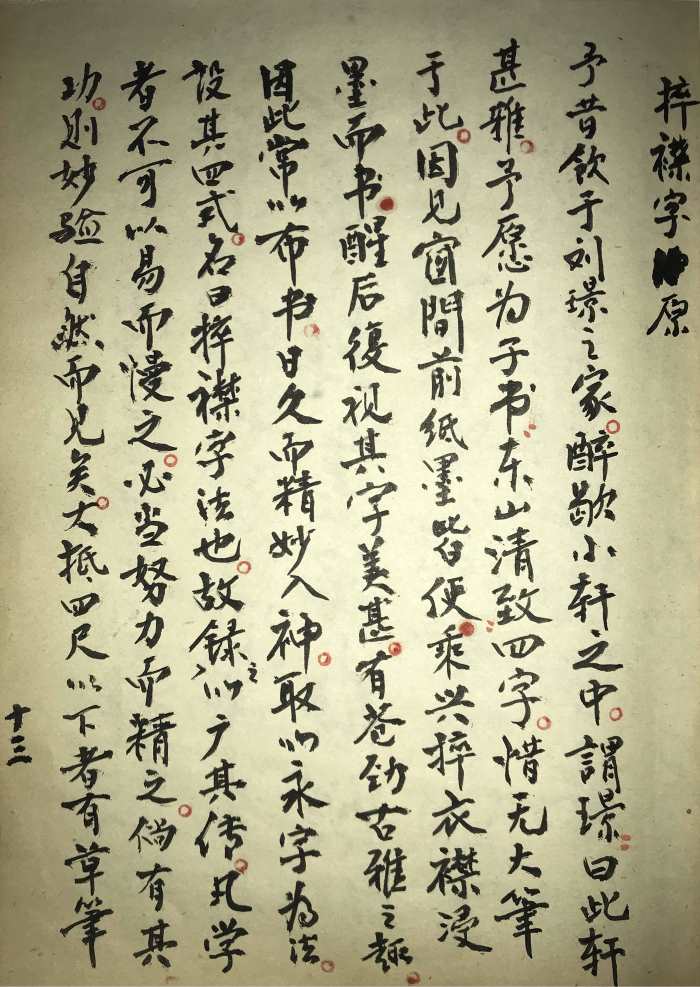 捽襟字原
予昔飲于刘璟之家醉歇小轩之中謂璟曰此轩
甚雅予愿为子书东山清致四字惜无大筆
于此因见窗間前纸墨皆便乘兴捽衣襟浸
墨而书醒后復视其字美甚有苍劲古雅之趣
因此常以布书日久而精妙入神取以永字為法
设其四式名曰捽襟字法也故録之以广其传凡学
者不可以易而慢之必当努力而精之倘有其
功则妙验自然而见矣大抵四尺以下者有草筆
十三